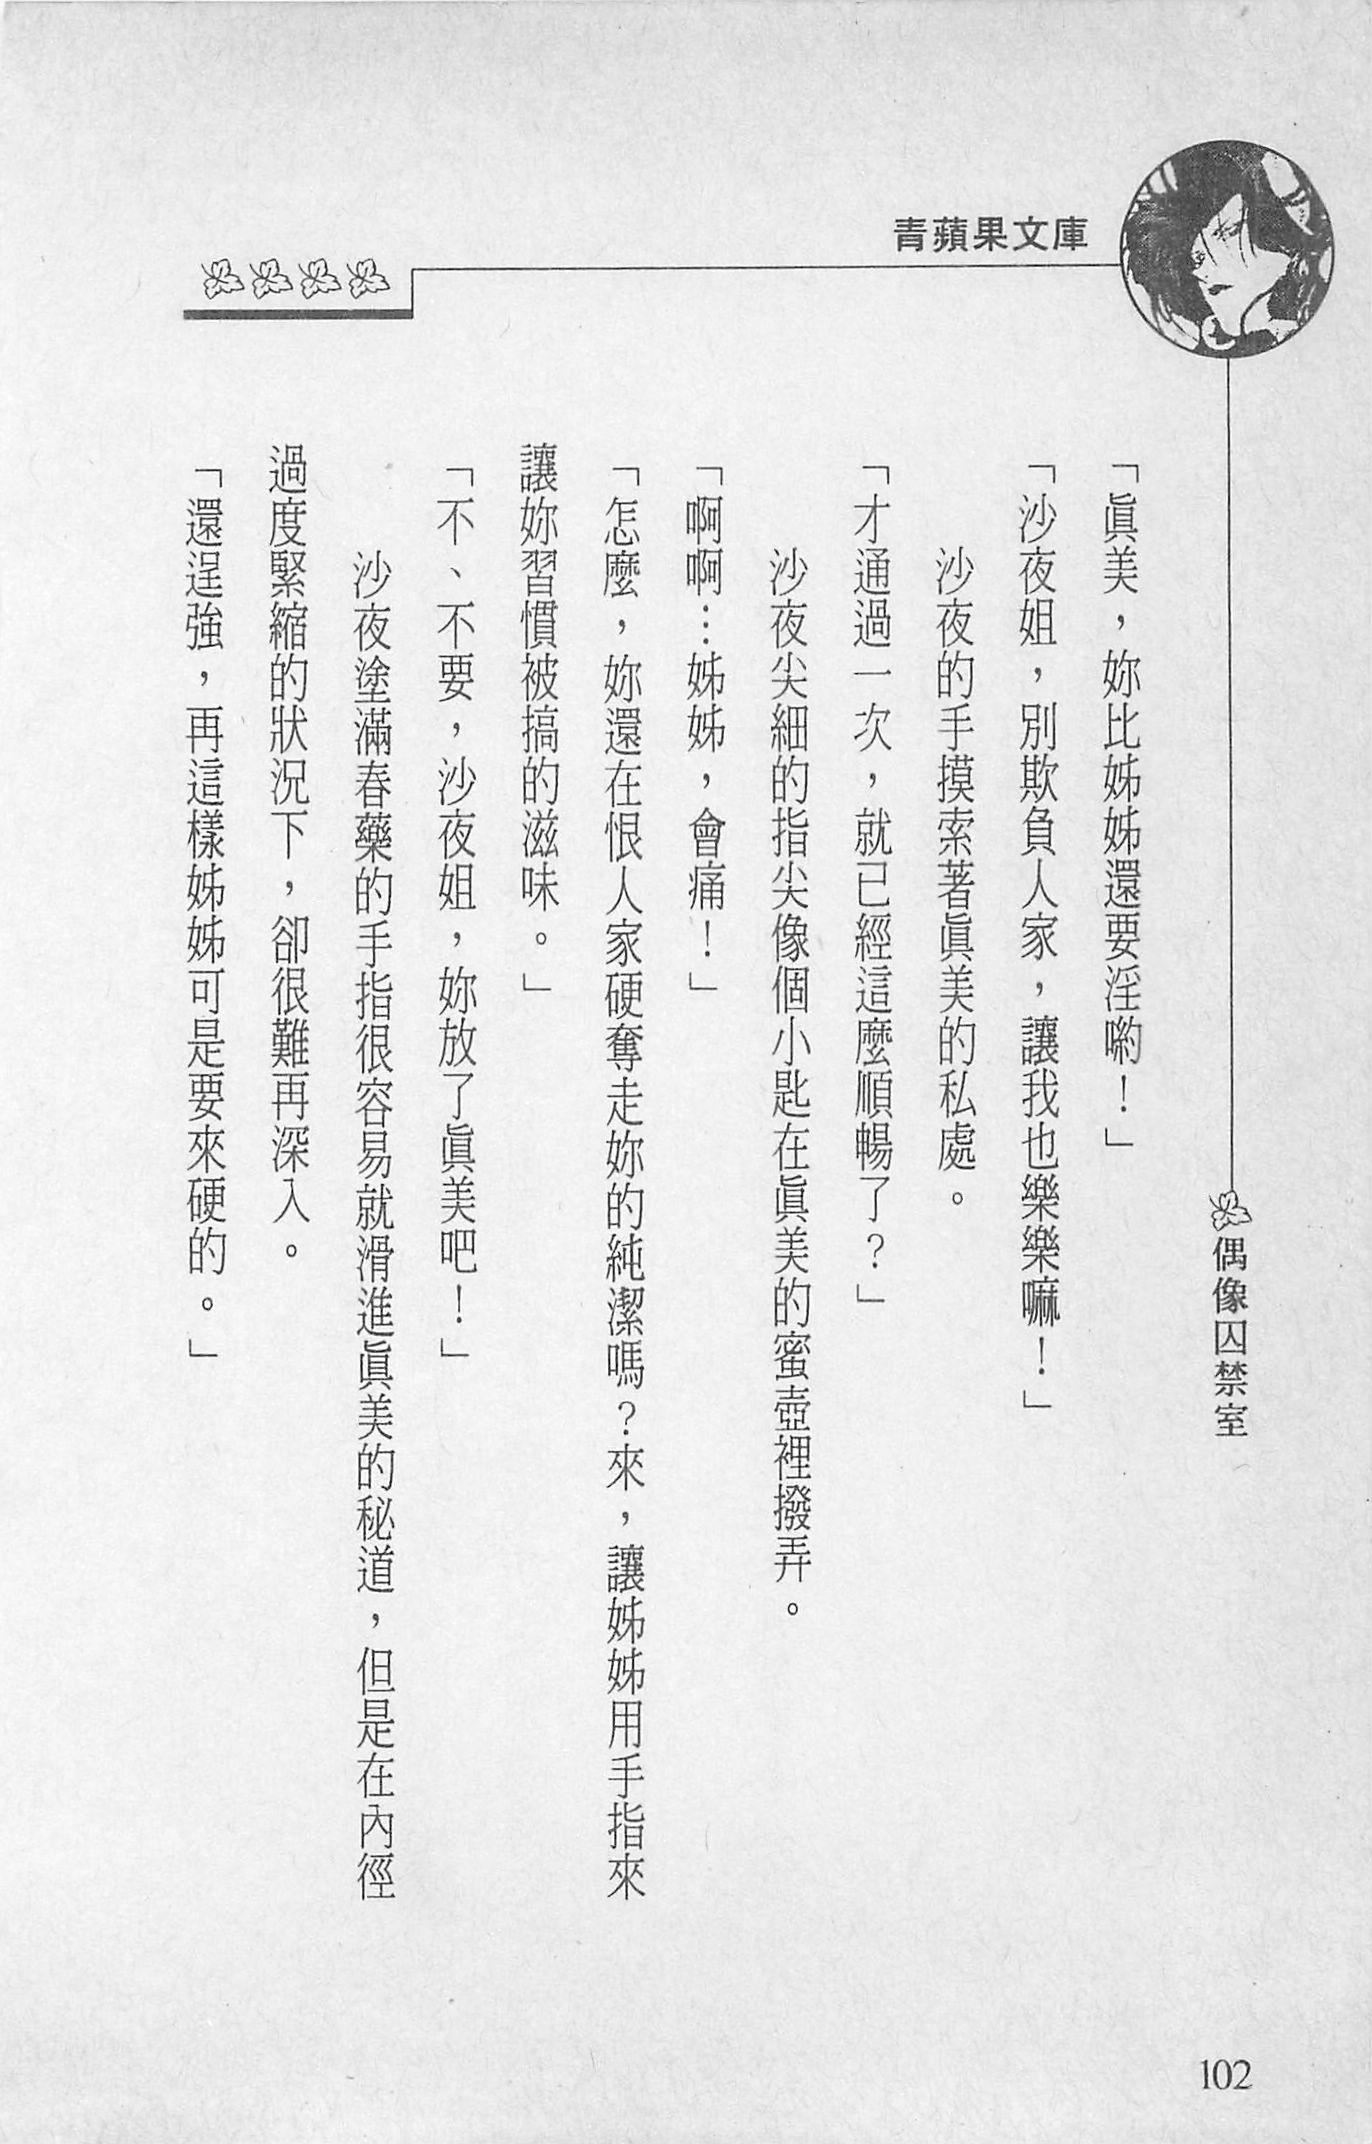 青蘋果文庫
偶像囚禁室
「眞美，妳比姊姊還要淫喲！」
「沙夜姐，別欺負人家，讓我也樂樂嘛！」
沙夜的手摸索著眞美的私處。
「才通過一次，就已經這麼順暢了？」
沙夜尖細的指尖像個小匙在眞美的蜜壺裡撥弄。
「啊啊…姊姊，會痛！」
「怎麼，妳還在恨人家硬奪走妳的純潔嗎？來，讓姊姊用手指來
讓妳習慣被搞的滋味。」
「不、不要，沙夜姐，妳放了眞美吧！」
沙夜塗滿春藥的手指很容易就滑進眞美的秘道，但是在內徑
過度緊縮的狀況下，卻很難再深入。
「還逞強，再這樣姊姊可是要來硬的。」
102